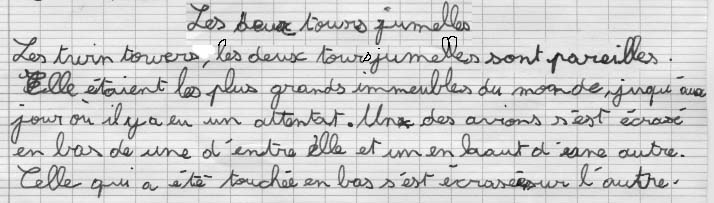 Les deux tours jumelles
Les twin towers, les deux tours jumelles sont pareilles.
Elle étaient les plus grands immeubles du monde, jusqu'aux
jour où il y a eu un attentat. Un des avions s'est écrasé
en bas de une d'entre elle et un en haut d'une autre.
Celle qui a été touchée en bas s'est écrasée sur l'autre.